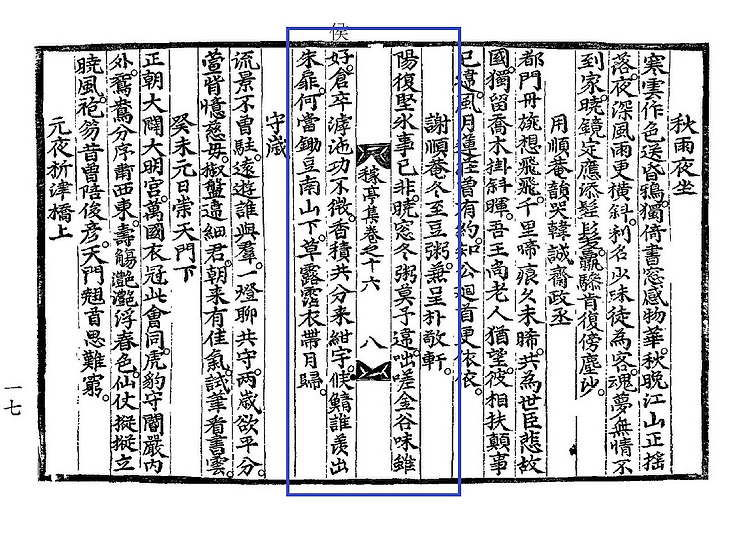 侯
秋雨夜坐
寒雲作色送昏鴉。獨倚書窓感物華。秋晚江山正搖
落。夜深風雨更橫斜。利名少味徒為客。魂夢無情不
到家。曉鏡定應添髮。羸驂肯復傍塵沙。
用順菴韻哭韓誠齋政丞
都門丹旐想飛飛。千里啼痕久未晞。共為世臣悲故
國。獨留喬木掛斜暉。吾王尚老人猶望。彼相扶顛事
已違。風月蓮莊曾有約。知公廻首更依依。
謝順菴冬至豆粥。兼呈朴敬軒。
陽復堅氷事已非。晚窓冬粥莫予違。咄嗟金谷味雖
稼亭集卷之十六 八
好。倉卒滹沱功不微。香積共分來紺宇。侯鯖誰羨出
朱扉。何當鋤豆南山下。草露霑衣帶月歸。
守歲
流景不曾駐。遠遊誰與羣。一燈聊共守。兩歲欲平分。
萱背憶慈母。椒盤遠細君。朝來有佳氣。試筆看書雲。
癸未元日崇天門下
正朝大闢大明宮。萬國衣冠此會同。虎豹守閽嚴內
外。鴛鷺分序肅西東。壽觴灩灩浮春色。仙仗摐摐立
曉風。袍笏昔曾陪俊彦。天門翹首思難窮。
元夜析津橋上
一七